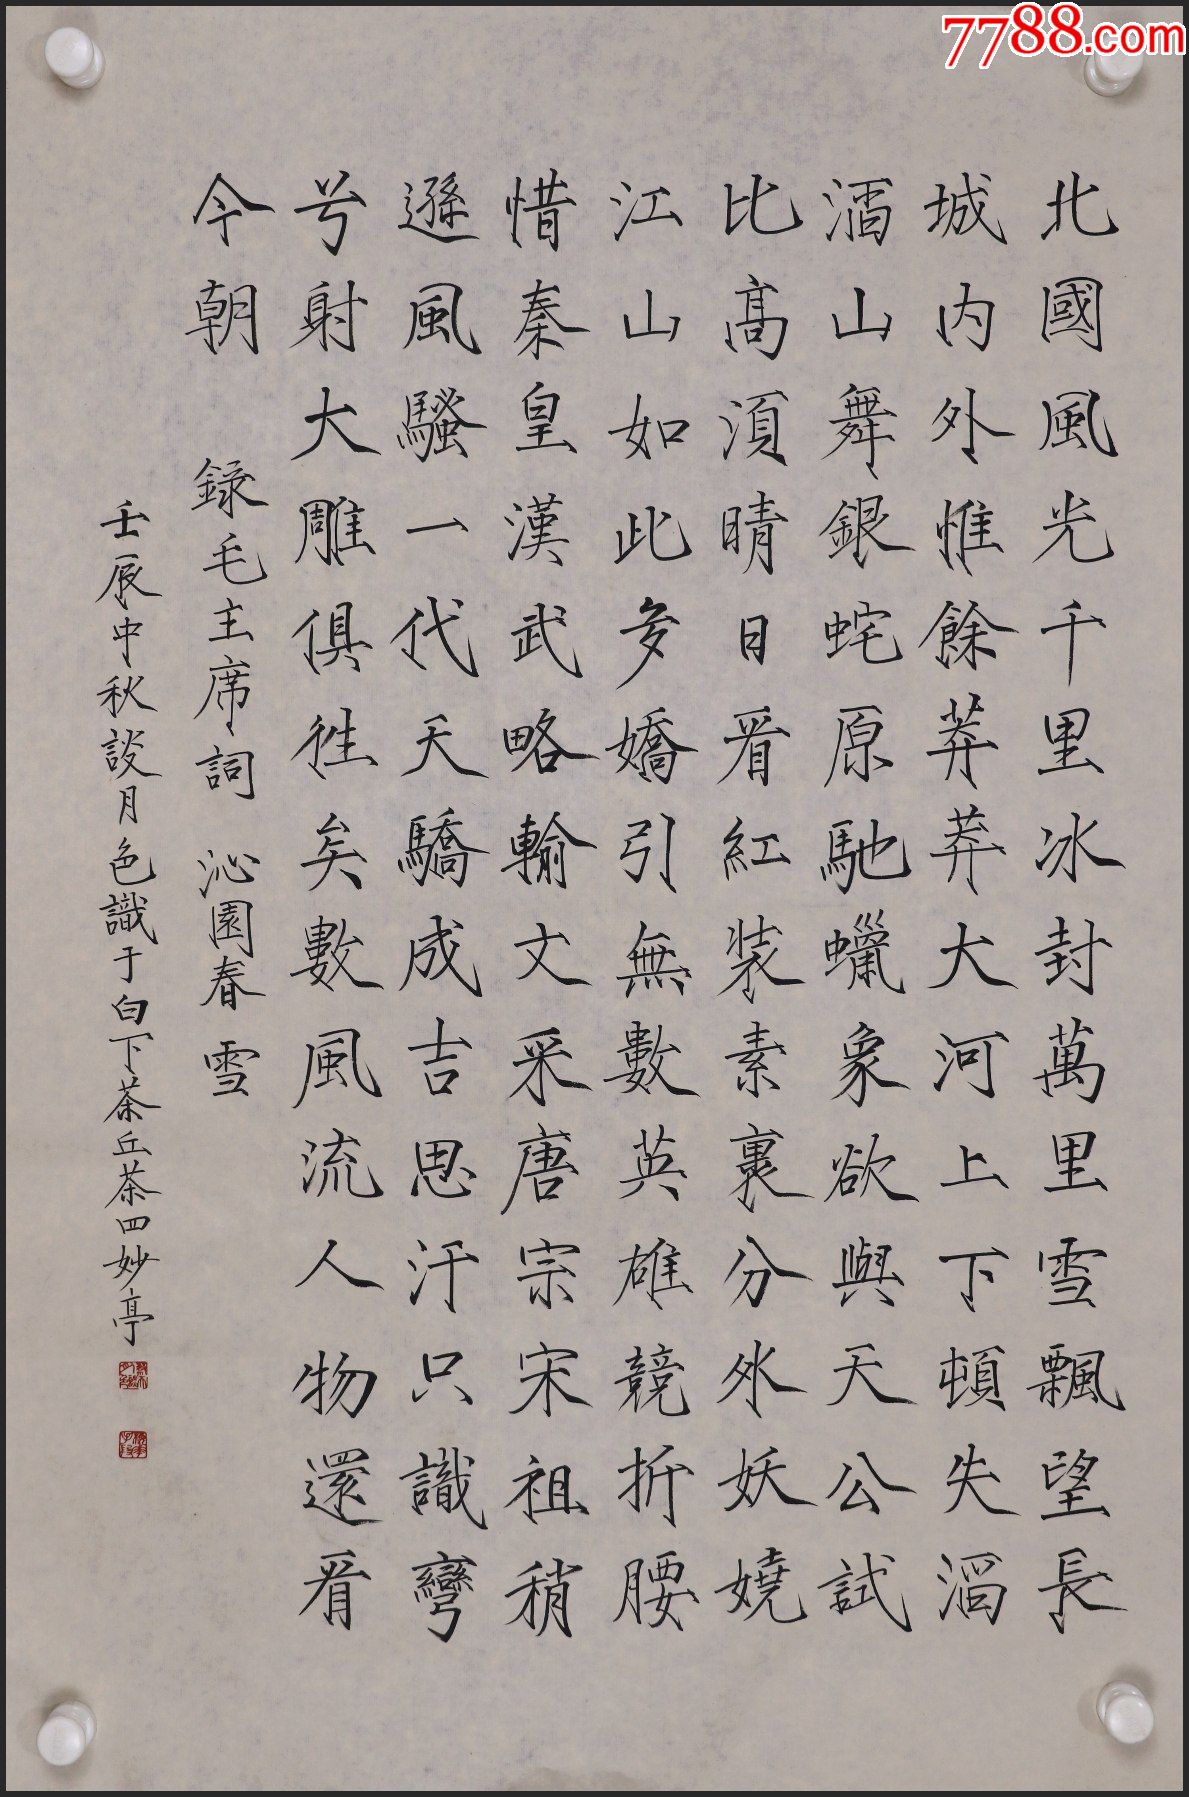 7788.com
北國風光千里冰封萬里雪飄望長
城内外惟餘莽莽大河上下頓失滔
滔山舞銀蛇原馳蠟象欲與天公試
比高湏晴日看紅装素裹分外妖嬈
江山如此多嬌引無數英雄競折腰
惜秦皇漢武略輸文采唐宗宋祖稍
遜風騷一代天驕成吉思汗只識彎
兮射大雕俱徃矣數風流人物還看
今朝 録毛主席詞 沁園春 雪
壬辰中秋談月色識于白下茶丘茶四妙亭